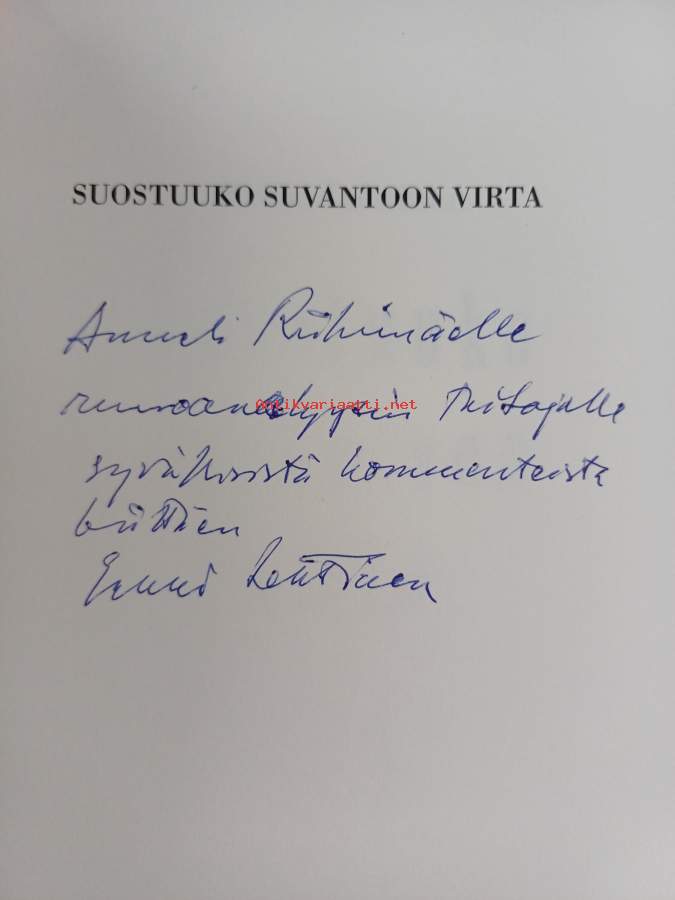 SUOSTUUKO SUVANTOON VIRTA
Anneli Riihimäelle
runoanalyysin Taitajalle
syvällisistä kommenteista
kiittäen
Lehtinen
Antikvariaatti.net